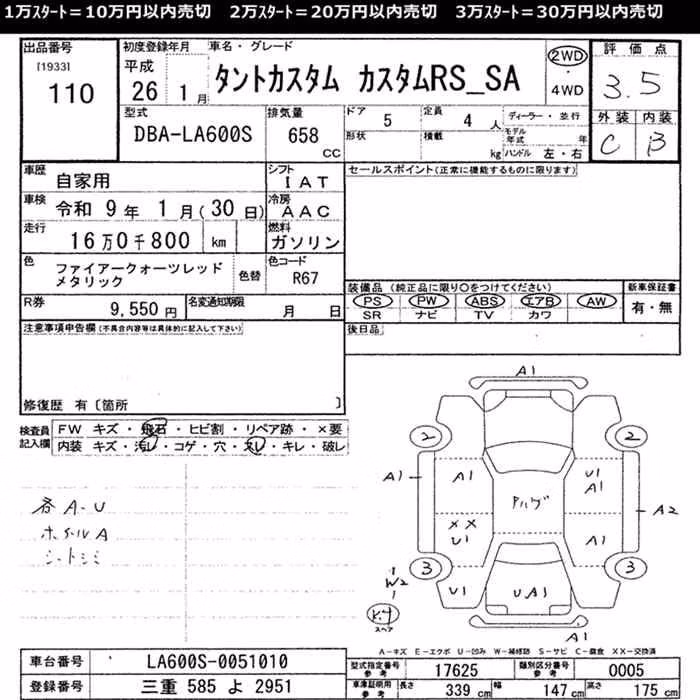 1万ｽﾀｰﾄ＝10万円以内売切　2万ｽﾀｰﾄ＝20万円以内売切　3万ｽﾀｰﾄ＝30万円以内売切
出品番号
[1933]
110
初度登録年月
平成
26 1月
車名・グレード
タントカスタム カスタムRS_SA
2WD
・
4WD
評価点
3.5
外装 内装
C B
型式
DBA-LA600S
排気量
658
CC
ドア 5
定員 4 人
形状
積載 kg
ディーラー・並行
モデル年式 年
ハンドル 左・右
車歴
自家用
シフト
IAT
車検
令和 9年 1月(30日)
冷房
AAC
走行
16万0千800 km
燃料
ガソリン
色
ファイアークォーツレッド
メタリック
色替
色コード
R67
R券
9,550円
名変通知期限
月 日
セールスポイント(正常に機能するものに限ります)
装備品 (純正品に限り○をつけてください)
PS PW ABS エアB AW
SR ナビ TV カワ
新車保証書
有・無
後日品
注意事項申告欄(不具合内容等は具体的に記入して下さい)
修復歴 有〔箇所 〕
検査員
記入欄
FW キズ・飛石・ヒビ割・リペア跡・×要
内装 キズ・汚レ・コゲ・穴・スレ・キレ・破レ
各A-U
ホイールA
シートシミ
A1
2 2
A1 A1 U1
A1
A2
アルゲ
XX
U1
A1
3 3
W2
U1 UA1 U1
A1
A-キズ E-エクボ U-凹み W-補修跡 S-サビ C-腐食 XX-交換済
車台番号
LA600S-0051010
登録番号
三重 585 よ 2951
型式指定番号
参考
17625
類別区分番号
参考
0005
車庫証明用
参考
長さ 339 cm 幅 147 cm 高さ 175 cm